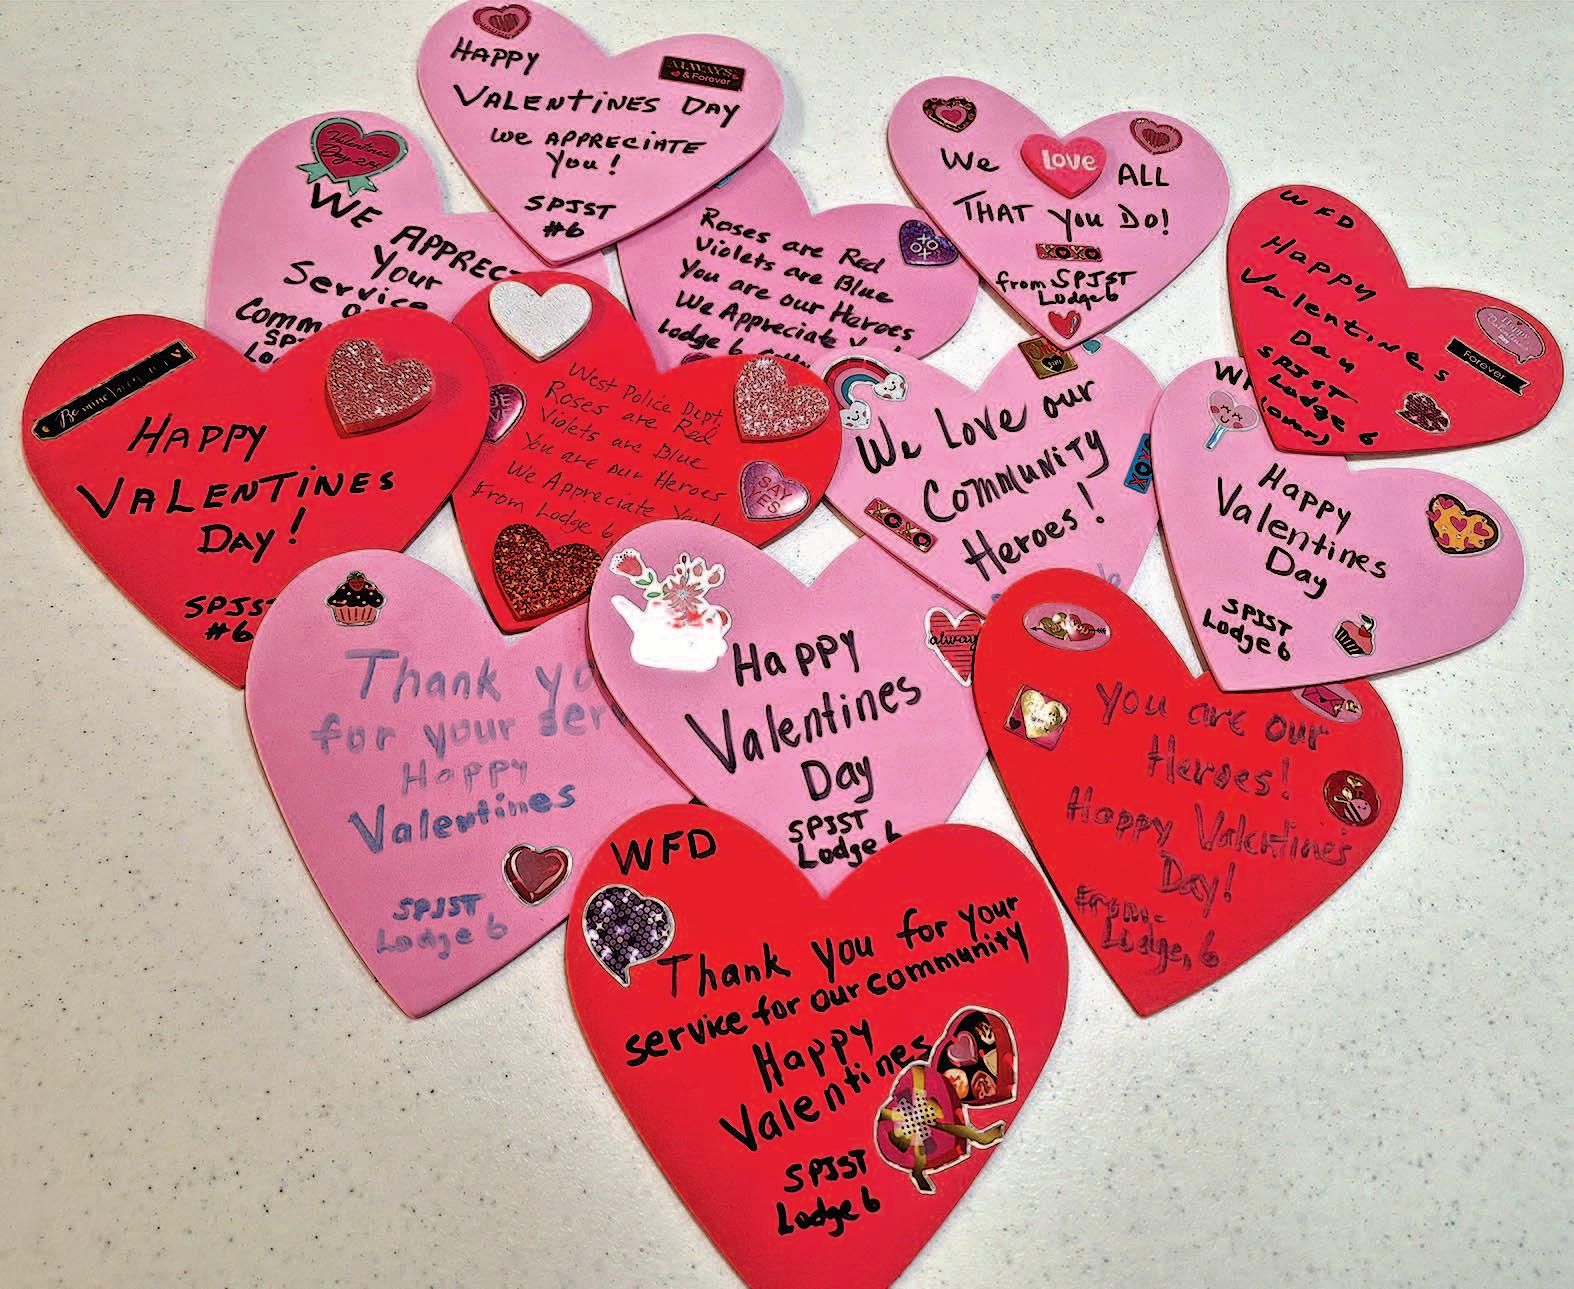 HAPPY
ALWAYS
& Forever
VALENTINES DAY
WE APPRECIATE
YOU!
SPJST
#6
Valentine's
Day
WE APPREC
Your
Service
Comm
SP
Lo
Roses are Red
Violets are Blue
You are our Heroes
We Appreciate
Lodge 6
We LOVE ALL
THAT You Do!
XOXO
from SPJST
Lodge 6
WFD
Happy
Valentines
Day
SPJST
Lodge 6
Forever
Be mine
HAPPY
VALENTINES
DAY!
SPJST
#6
West Police Dept.
Roses are Red
Violets are Blue
You are our Heroes
We Appreciate You!
From Lodge 6
SAY
YES
We Love our
Community
Heroes!
XOXO
XOXO
Happy
Valentines
Day
SPJST
Lodge 6
Thank yo
for your serv
Happy
Valentines
SPJST
Lodge 6
always
Happy
Valentines
Day
SPJST
Lodge 6
You are our
Heroes!
Happy Valentine's
Day!
From-
Lodge, 6
WFD
Thank you for your
service for our community
Happy
Valentines
SPJST
Lodge 6